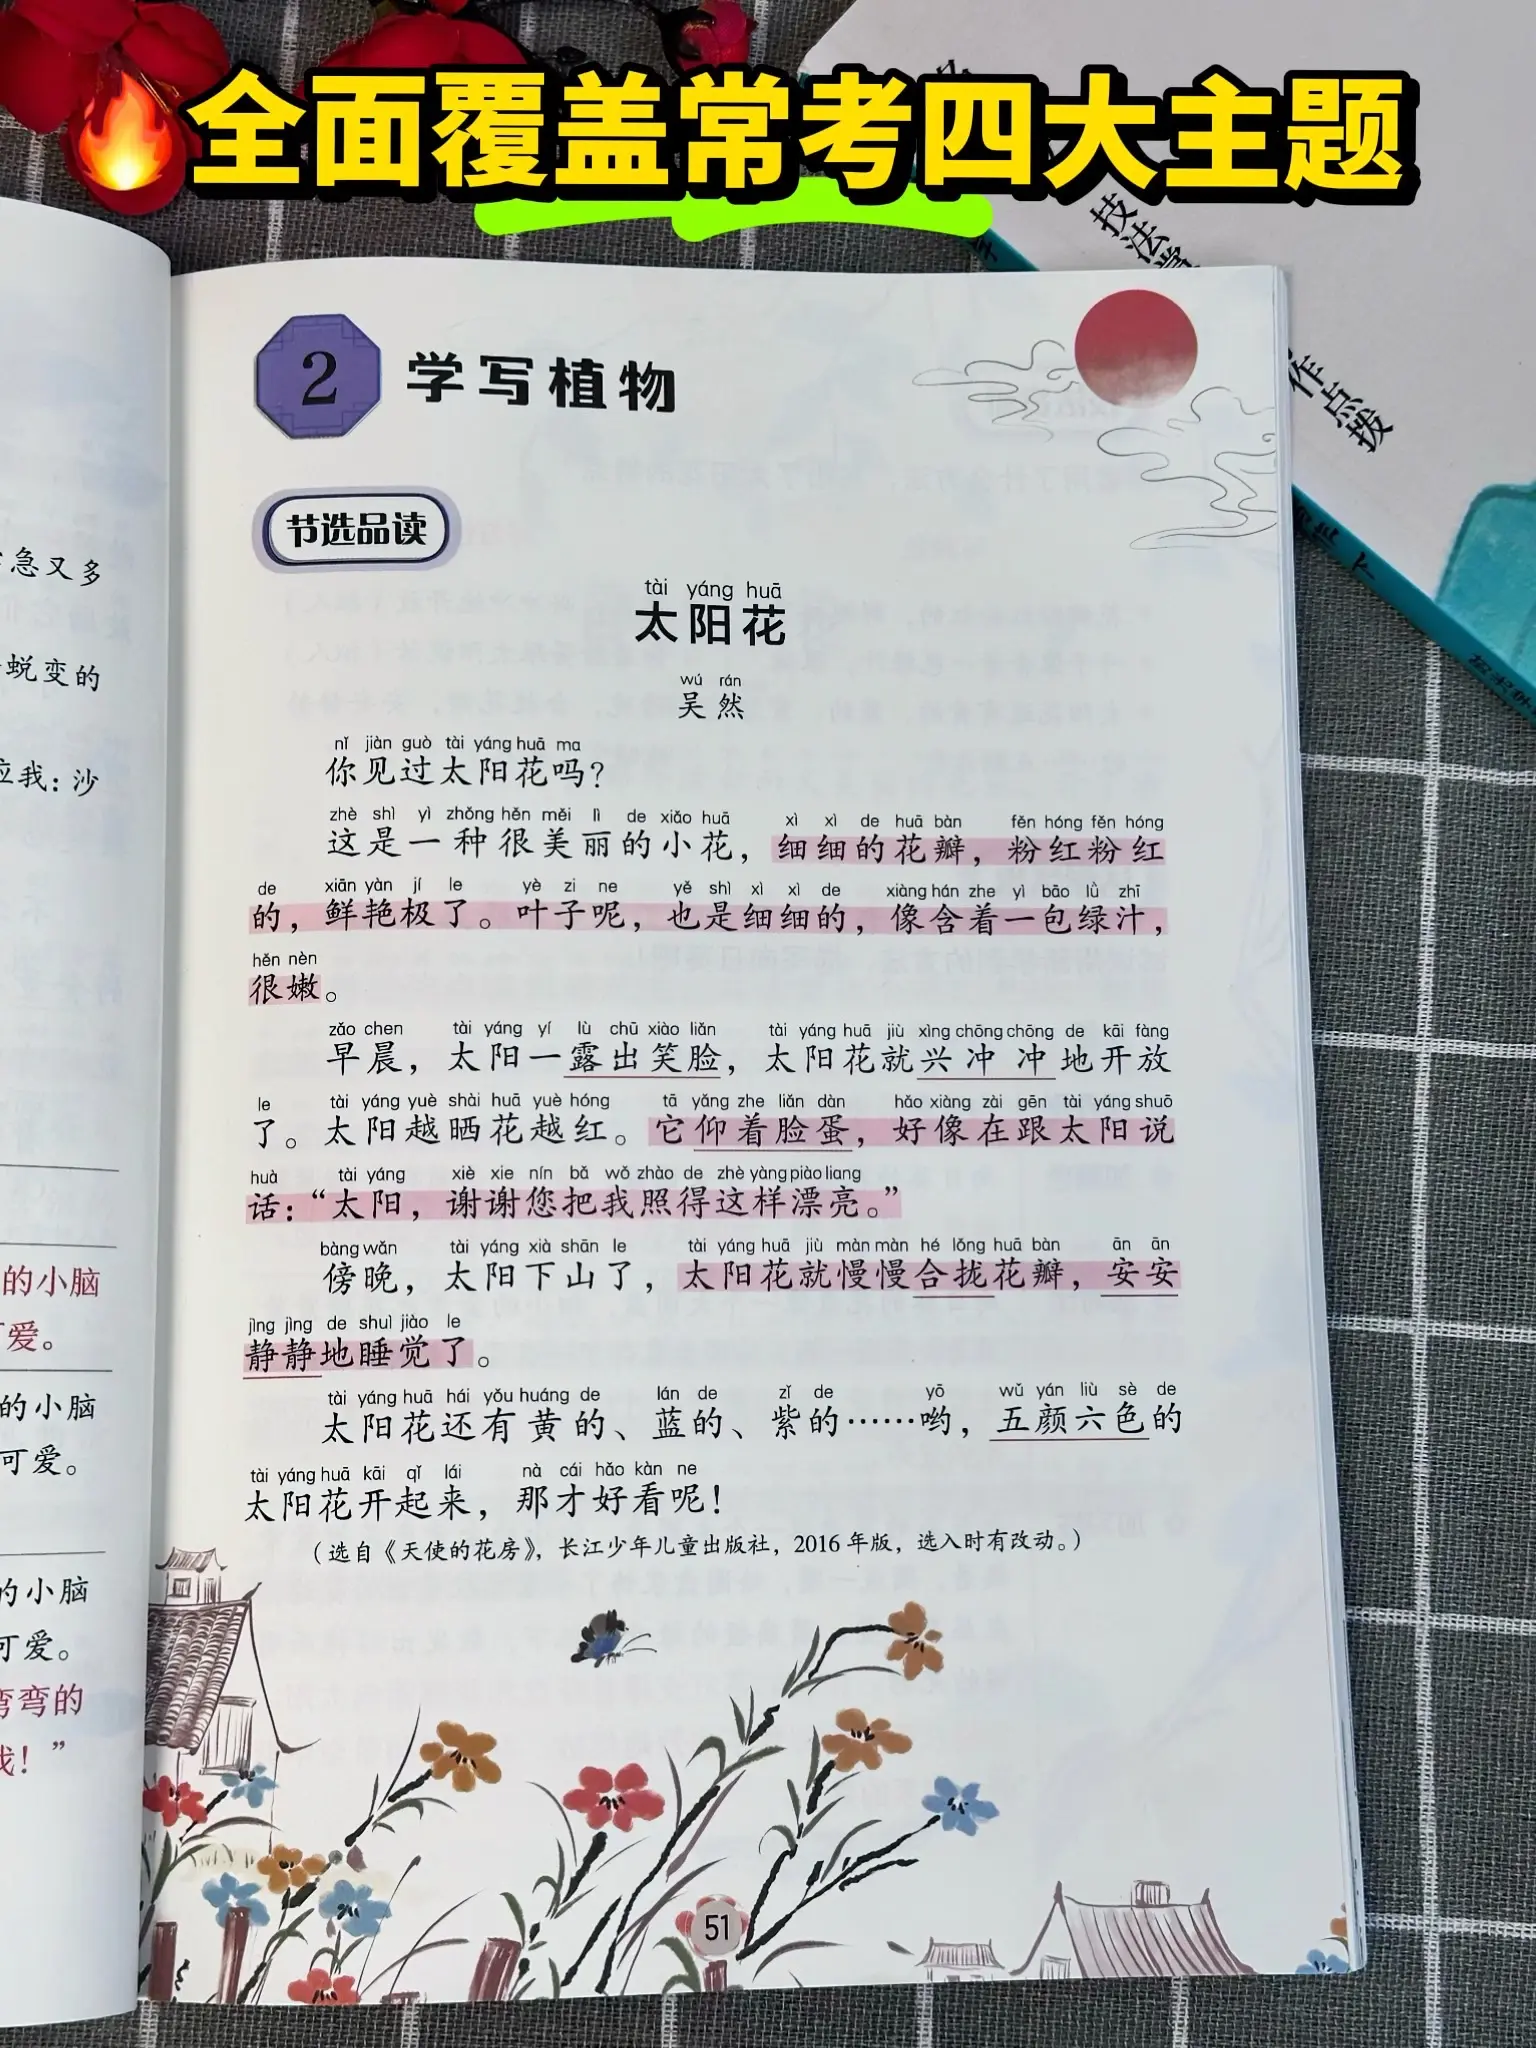 全面覆盖常考四大主题
技法学
作点拨
急又多
蜕变的
我：沙
的小脑
爱。
的小脑
可爱。
的小脑
可爱。
弯弯的
我！”
2 学写植物
节选品读
tài yáng huā
太阳花
wú rán
吴然
nǐ jiàn guò tài yáng huā ma
你见过太阳花吗？
zhè shì yì zhǒng hěn měi lì de xiǎo huā xì xì de huā bàn fěn hóng fěn hóng
这是一种很美丽的小花，细细的花瓣，粉红粉红
de xiān yàn jí le yè zi ne yě shì xì xì de xiàng hán zhe yì bāo lǜ zhī
的，鲜艳极了。叶子呢，也是细细的，像含着一包绿汁，
hěn nèn
很嫩。
zǎo chen tài yáng yí lù chū xiào liǎn tài yáng huā jiù xìng chōng chōng de kāi fàng
早晨，太阳一露出笑脸，太阳花就兴冲冲地开放
le tài yáng yuè shài huā yuè hóng tā yǎng zhe liǎn dàn hǎo xiàng zài gēn tài yáng shuō
了。太阳越晒花越红。它仰着脸蛋，好像在跟太阳说
huà tài yáng xiè xie nín bǎ wǒ zhào de zhè yàng piào liang
话：“太阳，谢谢您把我照得这样漂亮。”
bàng wǎn tài yáng xià shān le tài yáng huā jiù màn màn hé lǒng huā bàn ān ān
傍晚，太阳下山了，太阳花就慢慢合拢花瓣，安安
jìng jìng de shuì jiào le
静静地睡觉了。
tài yáng huā hái yǒu huáng de lán de zǐ de yō wǔ yán liù sè de
太阳花还有黄的、蓝的、紫的……哟，五颜六色的
tài yáng huā kāi qǐ lái nà cái hǎo kàn ne
太阳花开起来，那才好看呢！
（选自《天使的花房》，长江少年儿童出版社，2016年版，选入时有改动。）
51